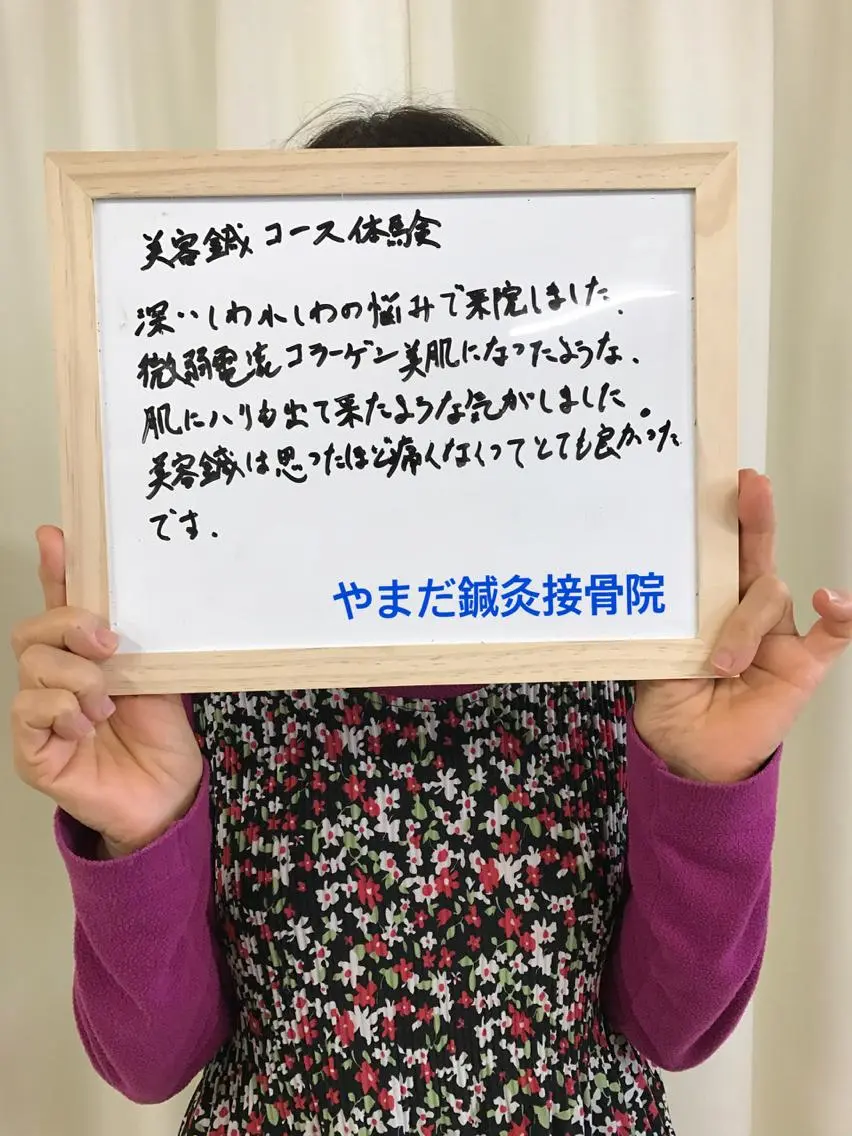 美容鍼コース体験
深いしわ小じわの悩みで来院しました.
微弱電流コラーゲン美肌になったような.
肌にハリも出て来たような気がしました。
美容鍼は思ったほど痛くなくってとても良かった
です.
やまだ鍼灸接骨院